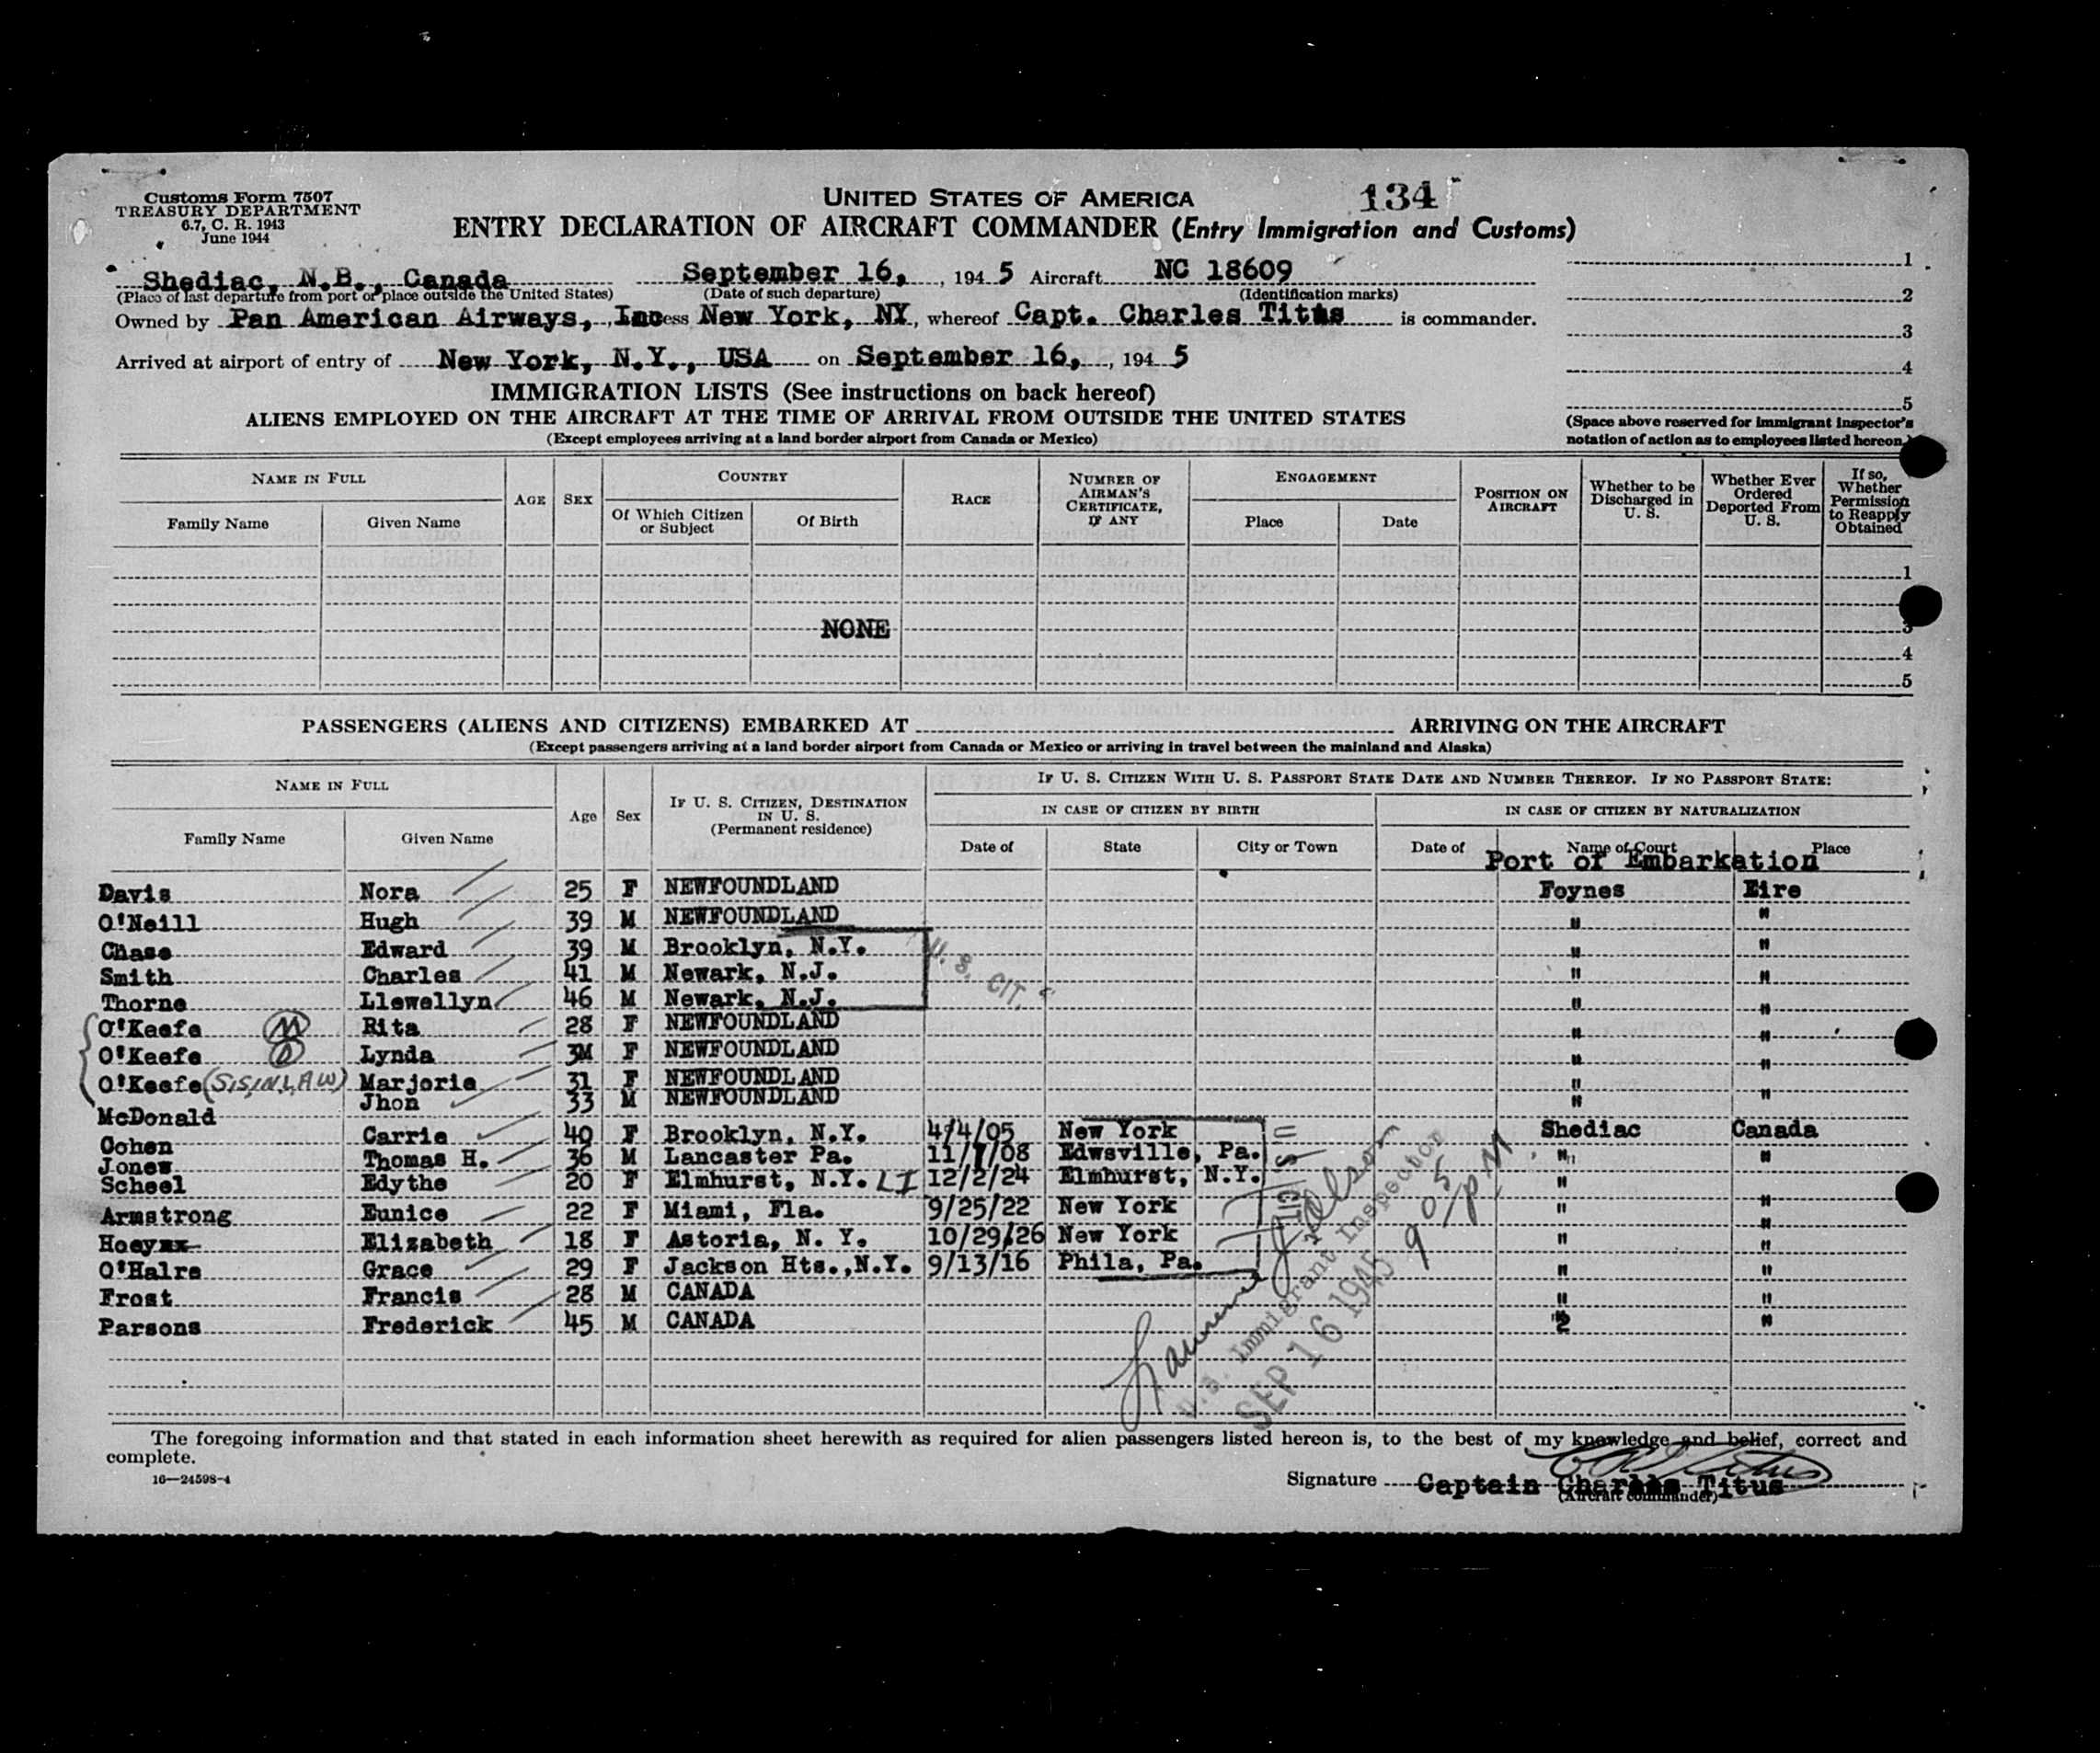 Customs Form 7507
TREASURY DEPARTMENT
6.7, C. R. 1943
June 1944
UNITED STATES OF AMERICA
134
ENTRY DECLARATION OF AIRCRAFT COMMANDER (Entry Immigration and Customs)
Shediac, N.B., Canada September 16, 1945 Aircraft NC 18609
(Place of last departure from port or place outside the United States) (Date of such departure) (Identification marks)
Owned by Pan American Airways, Inc ess New York, NY, whereof Capt. Charles Titus is commander.
Arrived at airport of entry of New York, N.Y., USA on September 16, 1945
1
2
3
4
5
(Space above reserved for Immigrant Inspector's
notation of action as to employees listed hereon.)
IMMIGRATION LISTS (See instructions on back hereof)
ALIENS EMPLOYED ON THE AIRCRAFT AT THE TIME OF ARRIVAL FROM OUTSIDE THE UNITED STATES
(Except employees arriving at a land border airport from Canada or Mexico)
NAME IN FULL
Family Name Given Name
AGE SEX
COUNTRY
Of Which Citizen or Subject Of Birth
RACE
NUMBER OF AIRMAN'S CERTIFICATE, IF ANY
ENGAGEMENT
Place Date
POSITION ON AIRCRAFT
Whether to be Discharged in U. S.
Whether Ever Ordered Deported From U. S.
If so, Whether Permission to Reapply Obtained
1
NONE 3
4
5
PASSENGERS (ALIENS AND CITIZENS) EMBARKED AT ARRIVING ON THE AIRCRAFT
(Except passengers arriving at a land border airport from Canada or Mexico or arriving in travel between the mainland and Alaska)
NAME IN FULL
Family Name Given Name
Age Sex
IF U. S. CITIZEN, DESTINATION IN U. S. (Permanent residence)
IF U. S. CITIZEN WITH U. S. PASSPORT STATE DATE AND NUMBER THEREOF. IF NO PASSPORT STATE:
IN CASE OF CITIZEN BY BIRTH IN CASE OF CITIZEN BY NATURALIZATION
Date of State City or Town Date of Name of Court Place
Port of Embarkation
Davis Nora 25 F NEWFOUNDLAND Foynes Eire
O'Neill Hugh 39 M NEWFOUNDLAND " "
Chase Edward 39 M Brooklyn, N.Y. " "
Smith Charles 41 M Newark, N.J. " "
Thorne Llewellyn 46 M Newark, N.J. " "
U. S. CIT.
O'Keefe M Rita 28 F NEWFOUNDLAND " "
O'Keefe D Lynda 3M F NEWFOUNDLAND " "
O'Keefe (SIS,IN,LAW) Marjorie 31 F NEWFOUNDLAND " "
McDonald Jhon 33 M NEWFOUNDLAND " "
Cohen Carrie 40 F Brooklyn, N.Y. 4/4/05 New York Shediac Canada
Jonew Thomas H. 36 M Lancaster Pa. 11/ /08 Edwsville, Pa. " "
Scheel Edythe 20 F Elmhurst, N.Y. LI 12/2/24 Elmhurst, N.Y. "
Armstrong Eunice 22 F Miami, Fla. 9/25/22 New York " "
Hoeyxx Elizabeth 18 F Astoria, N. Y. 10/29/26 New York " "
O'Halre Grace 29 F Jackson Hts.,N.Y. 9/13/16 Phila, Pa. " "
Frost Francis 28 M CANADA " "
Parsons Frederick 45 M CANADA " "
U S CIT
U. S. Immigrant Inspector
SEP 16 1945
9 05/PM
The foregoing information and that stated in each information sheet herewith as required for alien passengers listed hereon is, to the best of my knowledge and belief, correct and
complete.
16—24598-4
Signature Captain Charles Titus
(Aircraft commander)